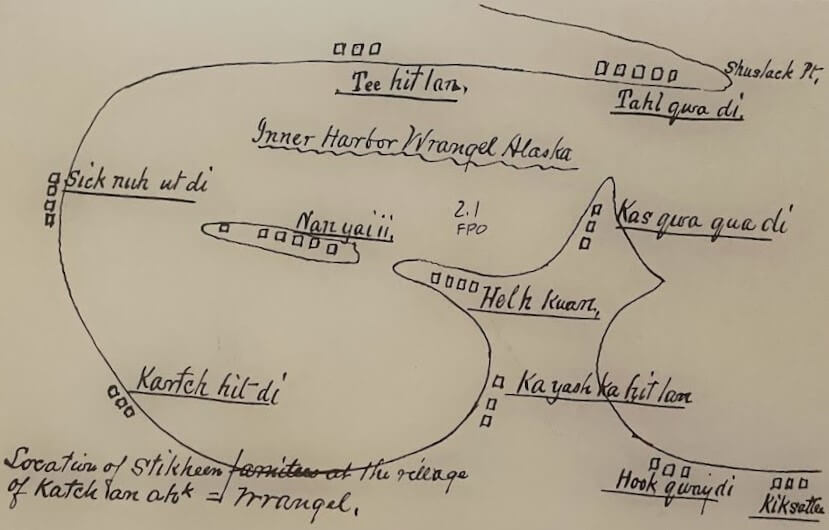 Shuslack Pt.
Tee hit lan,
Tahl qwa di,
Inner Harbor Wrangel Alaska
Sick nuh ut di
Nan yai ii,
2.1
FPO
Kas qwa qua di
Helh Kuan,
Kartch hit di
Ka yash ka hit lan
Location of Stikheen at the village
of Katch an atok = Wrangel.
Hook qway di
Kiksattee